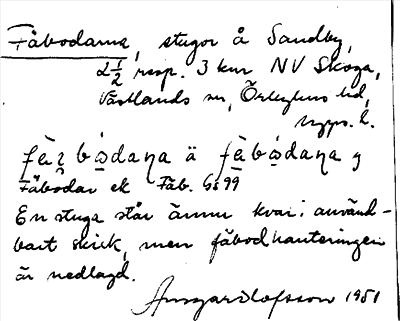 Fäbodarna, stugor å Sandby,
2 1/2 resp. 3 km NV Skoga,
Västlands sn, Örbyhus hd,
Upps. l.
fä̀ bọ̀daɳa ä fä̀bọ̀daɳa
Fäbodar ek Fäb. Gs 99
En stuga står ännu kvar i använd-
bart skick, men fäbodhanteringen
är nedlagd.
Ansgar Olofsson 1951